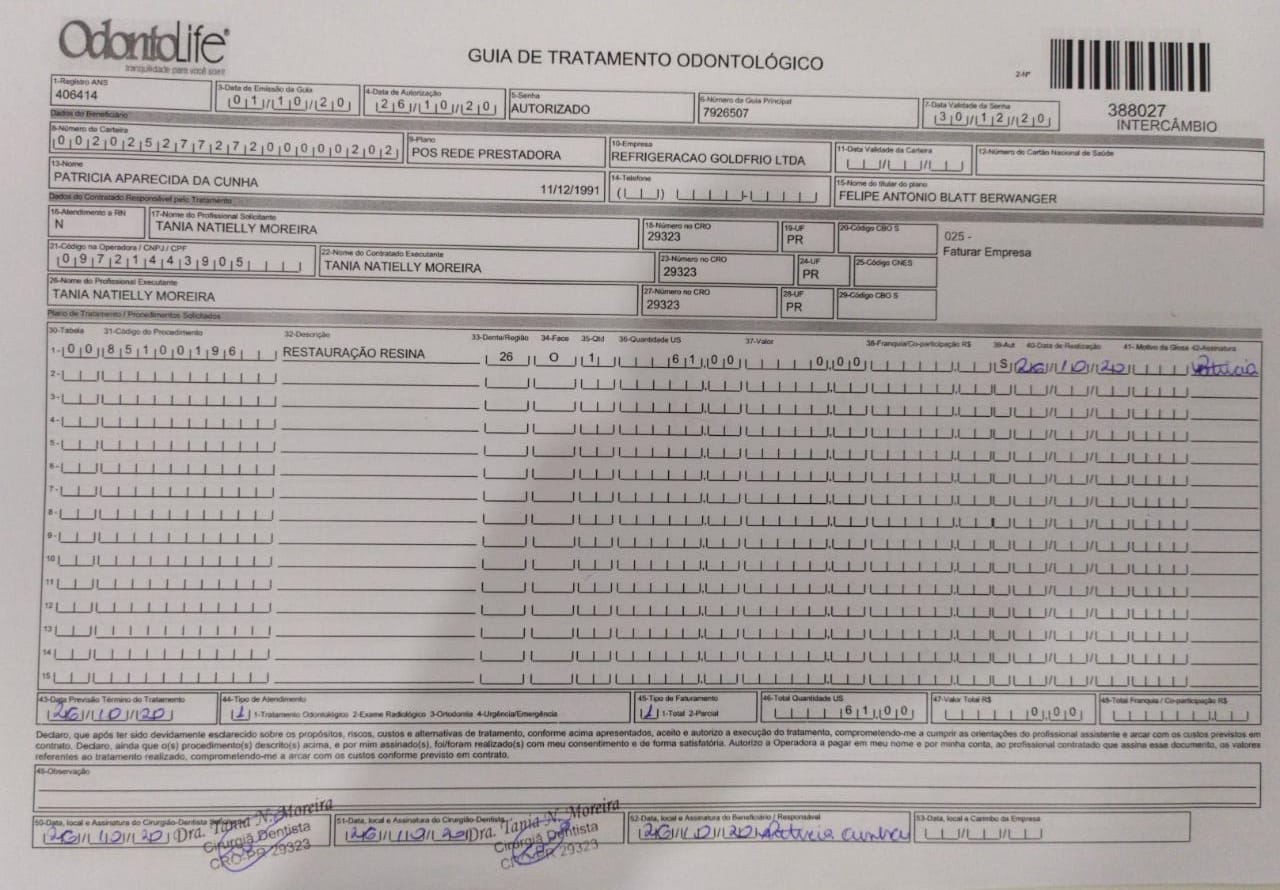 OdontoLife
tranquilidade para você sorrir
GUIA DE TRATAMENTO ODONTOLÓGICO
2-Nº
388027
INTERCÂMBIO
1-Registro ANS
406414
3-Data de Emissão da Guia
01/10/20
4-Data de Autorização
26/10/20
5-Senha
AUTORIZADO
6-Número da Guia Principal
7926507
7-Data Validade da Senha
30/12/20
Dados do Beneficiário
8-Número da Carteira
00202527727200000202
9-Plano
POS REDE PRESTADORA
10-Empresa
REFRIGERACAO GOLDFRIO LTDA
11-Data Validade da Carteira
12-Número do Cartão Nacional de Saúde
13-Nome
PATRICIA APARECIDA DA CUNHA 11/12/1991
14-Telefone
15-Nome do titular do plano
FELIPE ANTONIO BLATT BERWANGER
Dados do Contratado Responsável pelo Tratamento
16-Atendimento a RN
N
17-Nome do Profissional Solicitante
TANIA NATIELLY MOREIRA
18-Número no CRO
29323
19-UF
PR
20-Código CBO S
025 -
Faturar Empresa
21-Código na Operadora / CNPJ / CPF
09721443905
22-Nome do Contratado Executante
TANIA NATIELLY MOREIRA
23-Número no CRO
29323
24-UF
PR
25-Código CNES
26-Nome do Profissional Executante
TANIA NATIELLY MOREIRA
27-Número no CRO
29323
28-UF
PR
29-Código CBO S
Plano de Tratamento / Procedimentos Solicitados
30-Tabela 31-Código do Procedimento 32-Descrição 33-Dente/Região 34-Face 35-Qtd 36-Quantidade US 37-Valor 38-Franquia/Co-participação R$ 39-Aut 40-Data de Realização 41- Motivo da Glosa 42-Assinatura
1- 00 85100196 RESTAURAÇÃO RESINA 26 O 1 61,00 0,00 S 26/10/20 Patricia
2-
3-
4-
5-
6-
7-
8-
9-
10
11
12
13
14
15
43-Data Previsão Término do Tratamento
26/10/20
44-Tipo de Atendimento
1 1-Tratamento Odontológico 2-Exame Radiológico 3-Ortodontia 4-Urgência/Emergência
45-Tipo de Faturamento
1 1-Total 2-Parcial
46-Total Quantidade US
61,00
47-Valor Total R$
0,00
48-Total Franquia / Co-participação R$
Declaro, que após ter sido devidamente esclarecido sobre os propósitos, riscos, custos e alternativas de tratamento, conforme acima apresentados, aceito e autorizo a execução do tratamento, comprometendo-me a cumprir as orientações do profissional assistente e arcar com os custos previstos em
contrato. Declaro, ainda que o(s) procedimento(s) descrito(s) acima, e por mim assinado(s), foi/foram realizado(s) com meu consentimento e de forma satisfatória. Autorizo a Operadora a pagar em meu nome e por minha conta, ao profissional contratado que assina esse documento, os valores
referentes ao tratamento realizado, comprometendo-me a arcar com os custos conforme previsto em contrato.
49-Observação
50-Data, local e Assinatura do Cirurgião-Dentista
26/10/20 Dra. Tania N. Moreira
Cirurgiã Dentista
CRO-PR 29323
51-Data, local e Assinatura do Cirurgião-Dentista
26/10/20 Dra. Tania N. Moreira
Cirurgiã Dentista
CRO-PR 29323
52-Data, local e Assinatura do Beneficiário / Responsável
26/10/20 Patricia Cunha
53-Data, local e Carimbo da Empresa